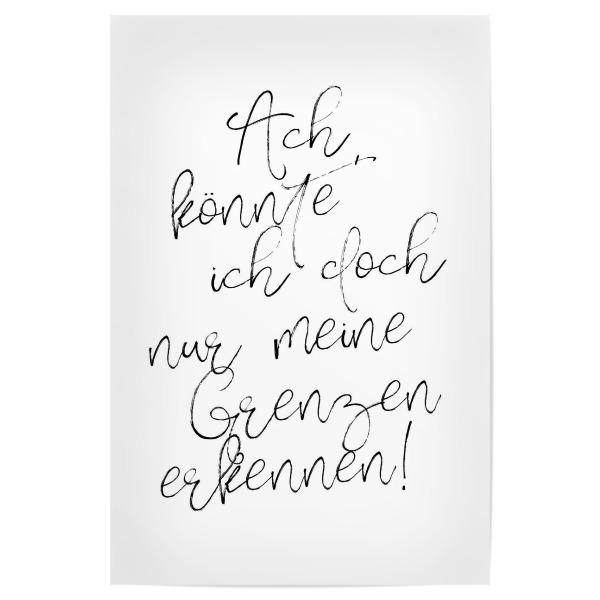 Ach,
könnte
ich doch
nur meine
Grenzen
erkennen!